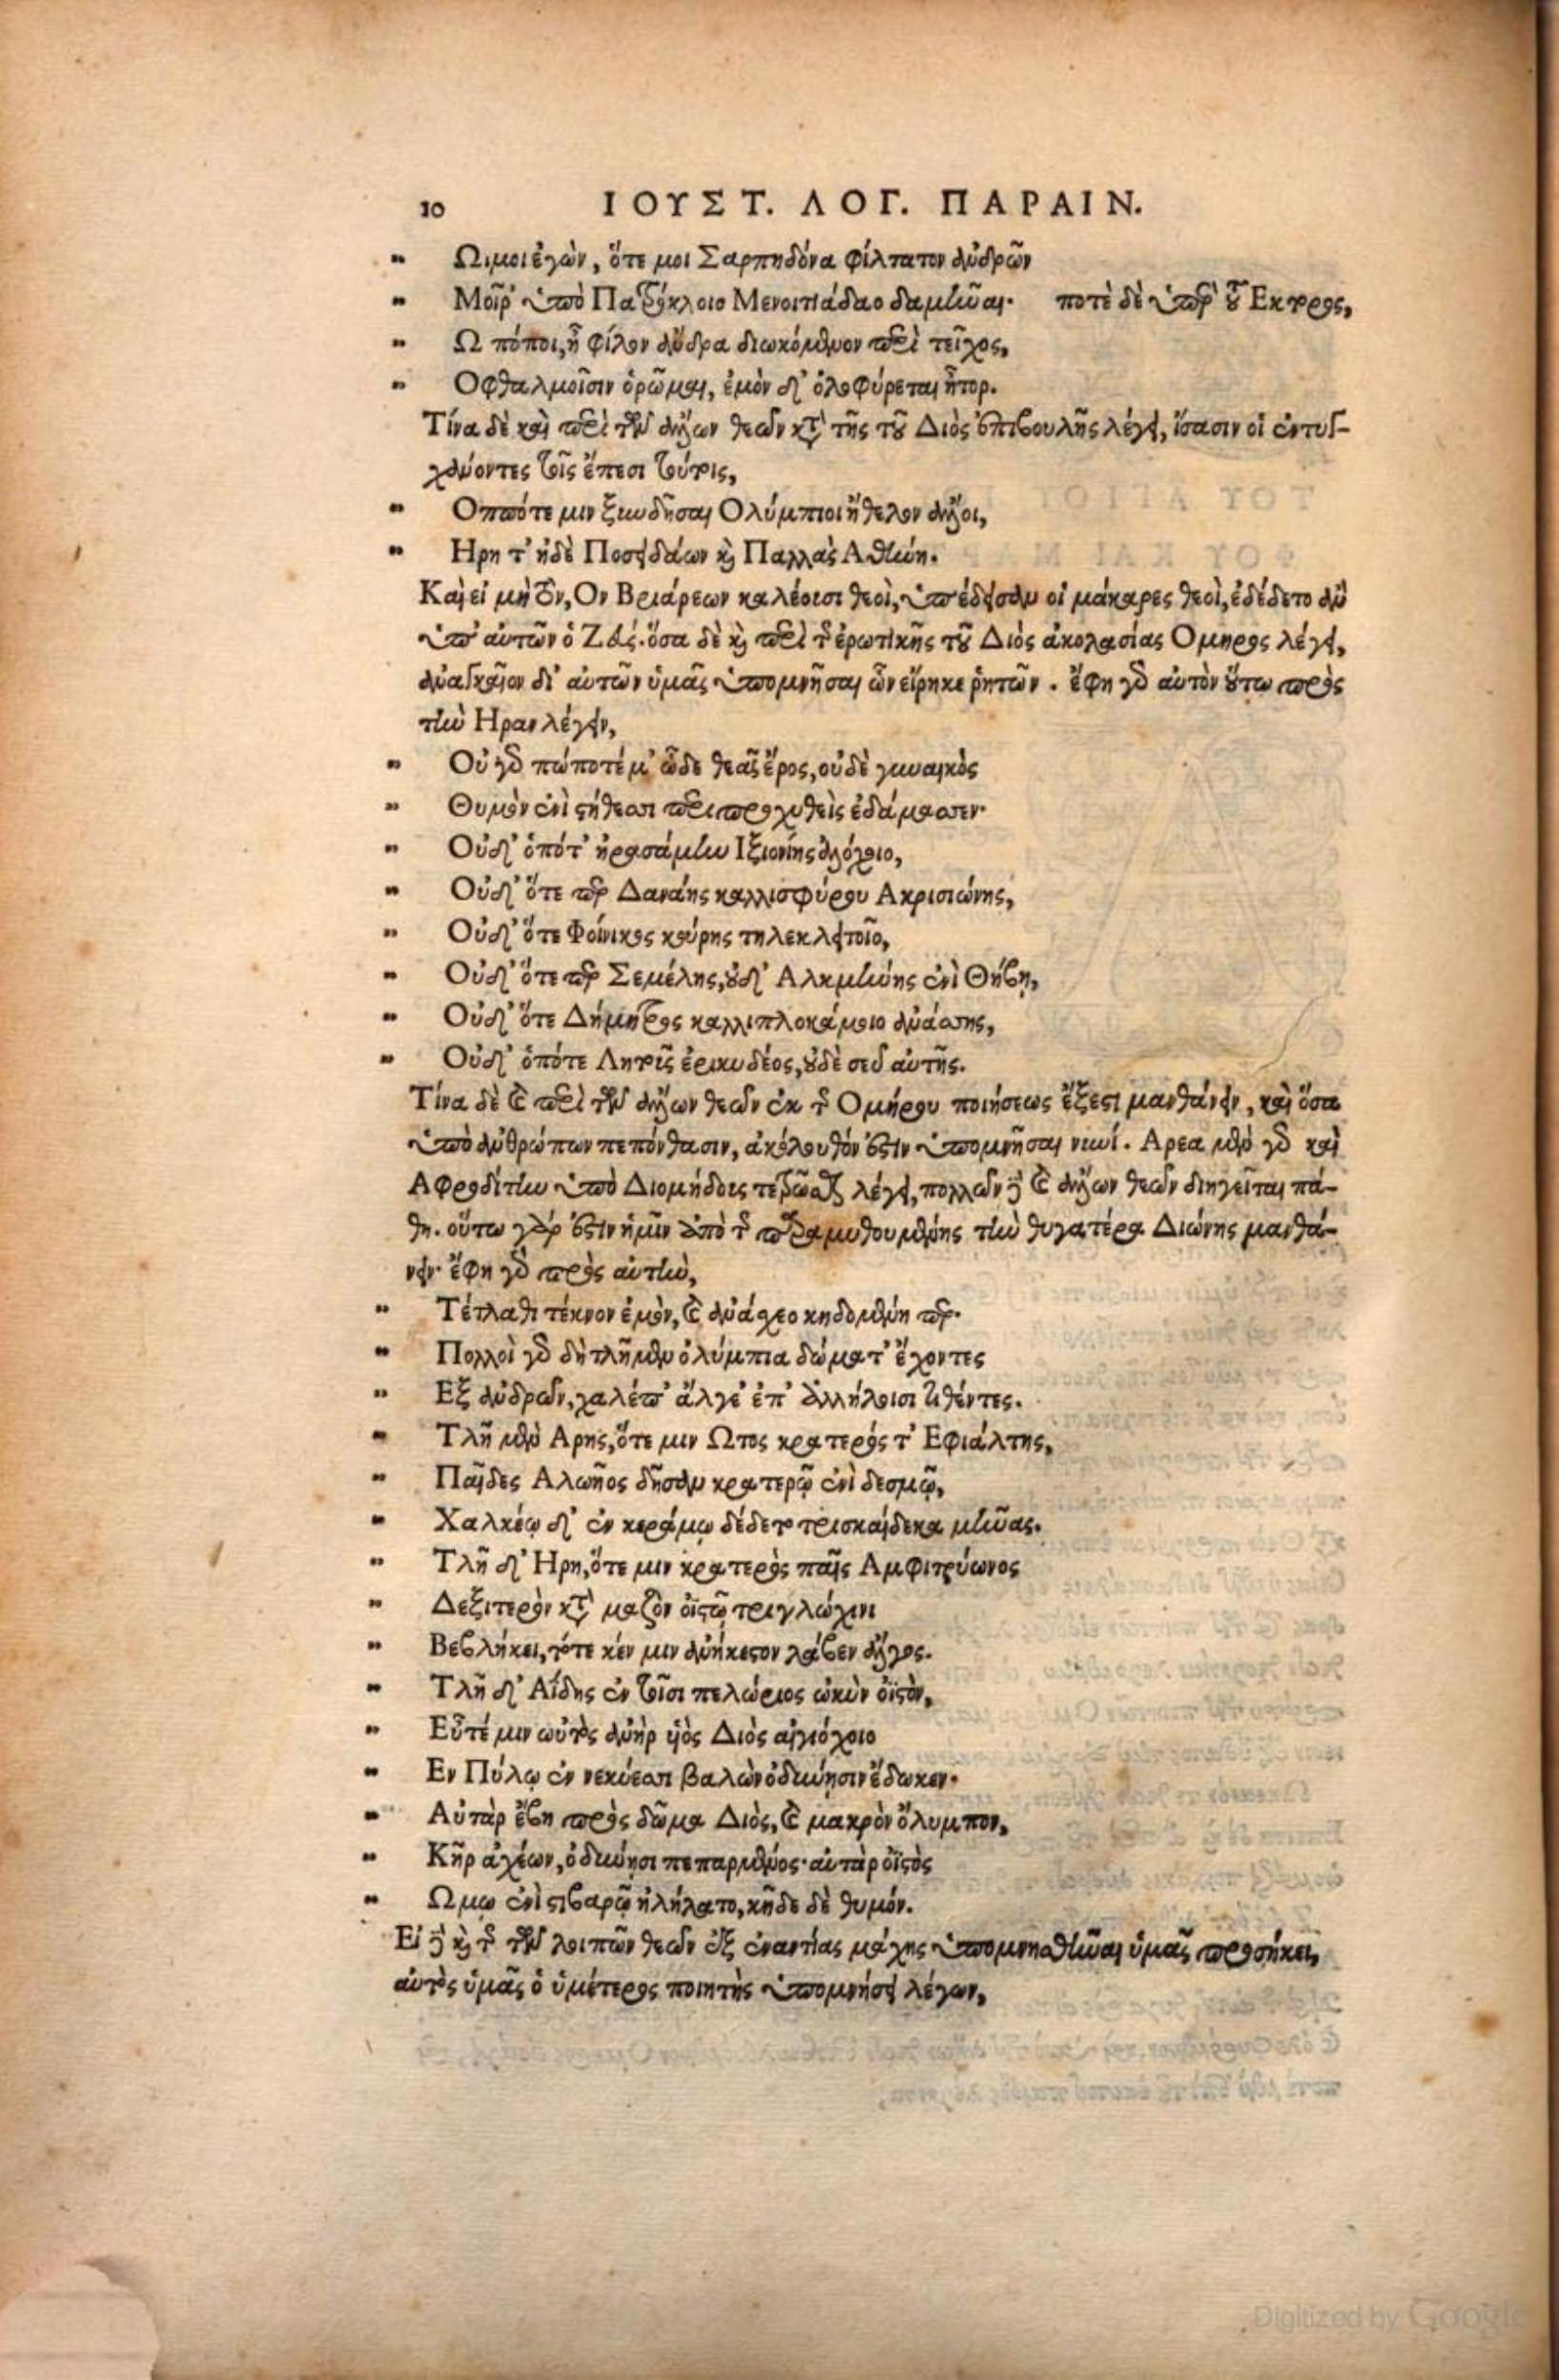 10 ΙΟΥΣΤ. ΛΟΓ. ΠΑΡΑΙΝ.
„ Ωιμοι ἐγὼν, ὅτε μοι Σαρπηδόνα φίλτατον ἀνδρῶν
„ Μοῖρ' ὑπὸ Πατρόκλοιο Μενοιτιάδαο δαμῆναι· ποτὲ δὲ ὑπὲρ τοῦ Εκτορος,
„ Ω πόποι, ἦ φίλον ἄνδρα διωκόμενον περὶ τεῖχος,
„ Οφθαλμοῖσιν ὁρῶμαι, ἐμὸν δ' ὀλοφύρεται ἦτορ.
Τίνα δὲ καὶ περὶ τῆς τῶν ἄλλων θεῶν κατὰ τῆς τοῦ Διὸς ἐπιβουλῆς λέγει, ἴσασιν οἱ ἐντυγ-
χάνοντες τοῖς ἔπεσι τούτοις,
„ Οππότε μιν ξυνδῆσαι Ολύμπιοι ἤθελον ἄλλοι,
„ Ηρη τ' ἠδὲ Ποσειδάων καὶ Παλλὰς Αθήνη.
Καὶ εἰ μὴ τὸν, Ον Βριάρεων καλέουσι θεοὶ, ὑπέδεισαν οἱ μάκαρες θεοὶ, ἐδέδετο ἂν
ὑπ' αὐτῶν ὁ Ζεύς. ὅσα δὲ καὶ περὶ τῆς ἐρωτικῆς τοῦ Διὸς ἀκολασίας Ομηρος λέγει,
ἀναγκαῖον δι' αὐτῶν ὑμᾶς ὑπομνῆσαι ὧν εἴρηκε ῥητῶν. ἔφη γὰρ αὐτὸν οὕτω πρὸς
τὴν Ηραν λέγειν,
„ Οὐ γὰρ πώποτέ μ' ὧδε θεᾶς ἔρος, οὐδὲ γυναικὸς
„ Θυμὸν ἐνὶ στήθεσσι περιπροχυθεὶς ἐδάμασσεν·
„ Οὐδ' ὁπότ' ἠρασάμην Ιξιονίης ἀλόχοιο,
„ Οὐδ' ὅτε περ Δανάης καλλισφύρου Ακρισιώνης,
„ Οὐδ' ὅτε Φοίνικος κούρης τηλεκλειτοῖο,
„ Οὐδ' ὅτε περ Σεμέλης, οὐδ' Αλκμήνης ἐνὶ Θήβῃ,
„ Οὐδ' ὅτε Δήμητρος καλλιπλοκάμοιο ἀνάσσης,
„ Οὐδ' ὁπότε Λητοῖς ἐρικυδέος, οὐδὲ σεῦ αὐτῆς.
Τίνα δὲ καὶ περὶ τῶν ἄλλων θεῶν ἐκ τῆς Ομήρου ποιήσεως ἔξεστι μανθάνειν, καὶ ὅσα
ὑπὸ ἀνθρώπων πεπόνθασιν, ἀκόλουθόν ἐστιν ὑπομνῆσαι νυνί. Αρεα μὲν γὰρ καὶ
Αφροδίτην ὑπὸ Διομήδους τετρῶσθαι λέγει, πολλῶν δὲ καὶ ἄλλων θεῶν διηγεῖται πά-
θη. οὕτω γὰρ ἔστιν ἡμῖν ἀπὸ τῆς παραμυθουμένης τὴν θυγατέρα Διώνης μανθά-
νειν· ἔφη γὰρ πρὸς αὐτὴν,
„ Τέτλαθι τέκνον ἐμὸν, καὶ ἀνάσχεο κηδομένη περ·
„ Πολλοὶ γὰρ δὴ τλῆμεν ὀλύμπια δώματ' ἔχοντες
„ Εξ ἀνδρῶν, χαλέπ' ἄλγε' ἐπ' ἀλλήλοισι τιθέντες.
„ Τλῆ μὲν Αρης, ὅτε μιν Ωτος κρατερός τ' Εφιάλτης,
„ Παῖδες Αλωῆος δῆσαν κρατερῷ ἐνὶ δεσμῷ,
„ Χαλκέῳ δ' ἐν κεράμῳ δέδετο τρισκαίδεκα μῆνας.
„ Τλῆ δ' Ηρη, ὅτε μιν κρατερὸς παῖς Αμφιτρύωνος
„ Δεξιτερὸν κατὰ μαζὸν ὀϊστῷ τριγλώχινι
„ Βεβλήκει, τότε κέν μιν ἀνήκεστον λάβεν ἄλγος.
„ Τλῆ δ' Αΐδης ἐν τοῖσι πελώριος ὠκὺν ὀϊστὸν,
„ Εὖτέ μιν ωὐτὸς ἀνὴρ υἱὸς Διὸς αἰγιόχοιο
„ Εν Πύλῳ ἐν νεκύεσσι βαλὼν ὀδύνῃσιν ἔδωκεν·
„ Αὐτὰρ ἔβη πρὸς δῶμα Διὸς, καὶ μακρὸν ὄλυμπον,
„ Κῆρ ἀχέων, ὀδύνῃσι πεπαρμένος· αὐτὰρ ὀϊστὸς
„ Ωμῳ ἐνὶ στιβαρῷ ἠλήλατο, κῆδε δὲ θυμόν.
Εἰ δὲ καὶ τῆς τῶν λοιπῶν θεῶν ἐξ ἐναντίας μάχης ὑπομνησθῆναι ὑμᾶς προσήκει,
αὐτὸς ὑμᾶς ὁ ὑμέτερος ποιητὴς ὑπομνήσει λέγων,
Digitized by Google